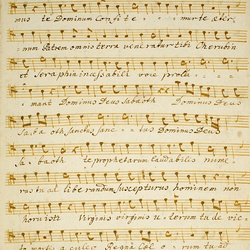 mus te Dominum Confite mur te Aeter,
num Patrem omnis terra veneratur tibi Cherubin
et Seraphin incessabili voce procla
mant Dominus Deus Sabaoth Dominus Deus
Saba oth Sanctus Sanc tus Dominus Deus
Sa ba oth te prophetarum laudabilis nume,
rus tu ad liberandum suscepturus hominem non
horuisti Virginis virginis u, terum tu de vic
to mortis a culeo Regni Coe o rum tu ad